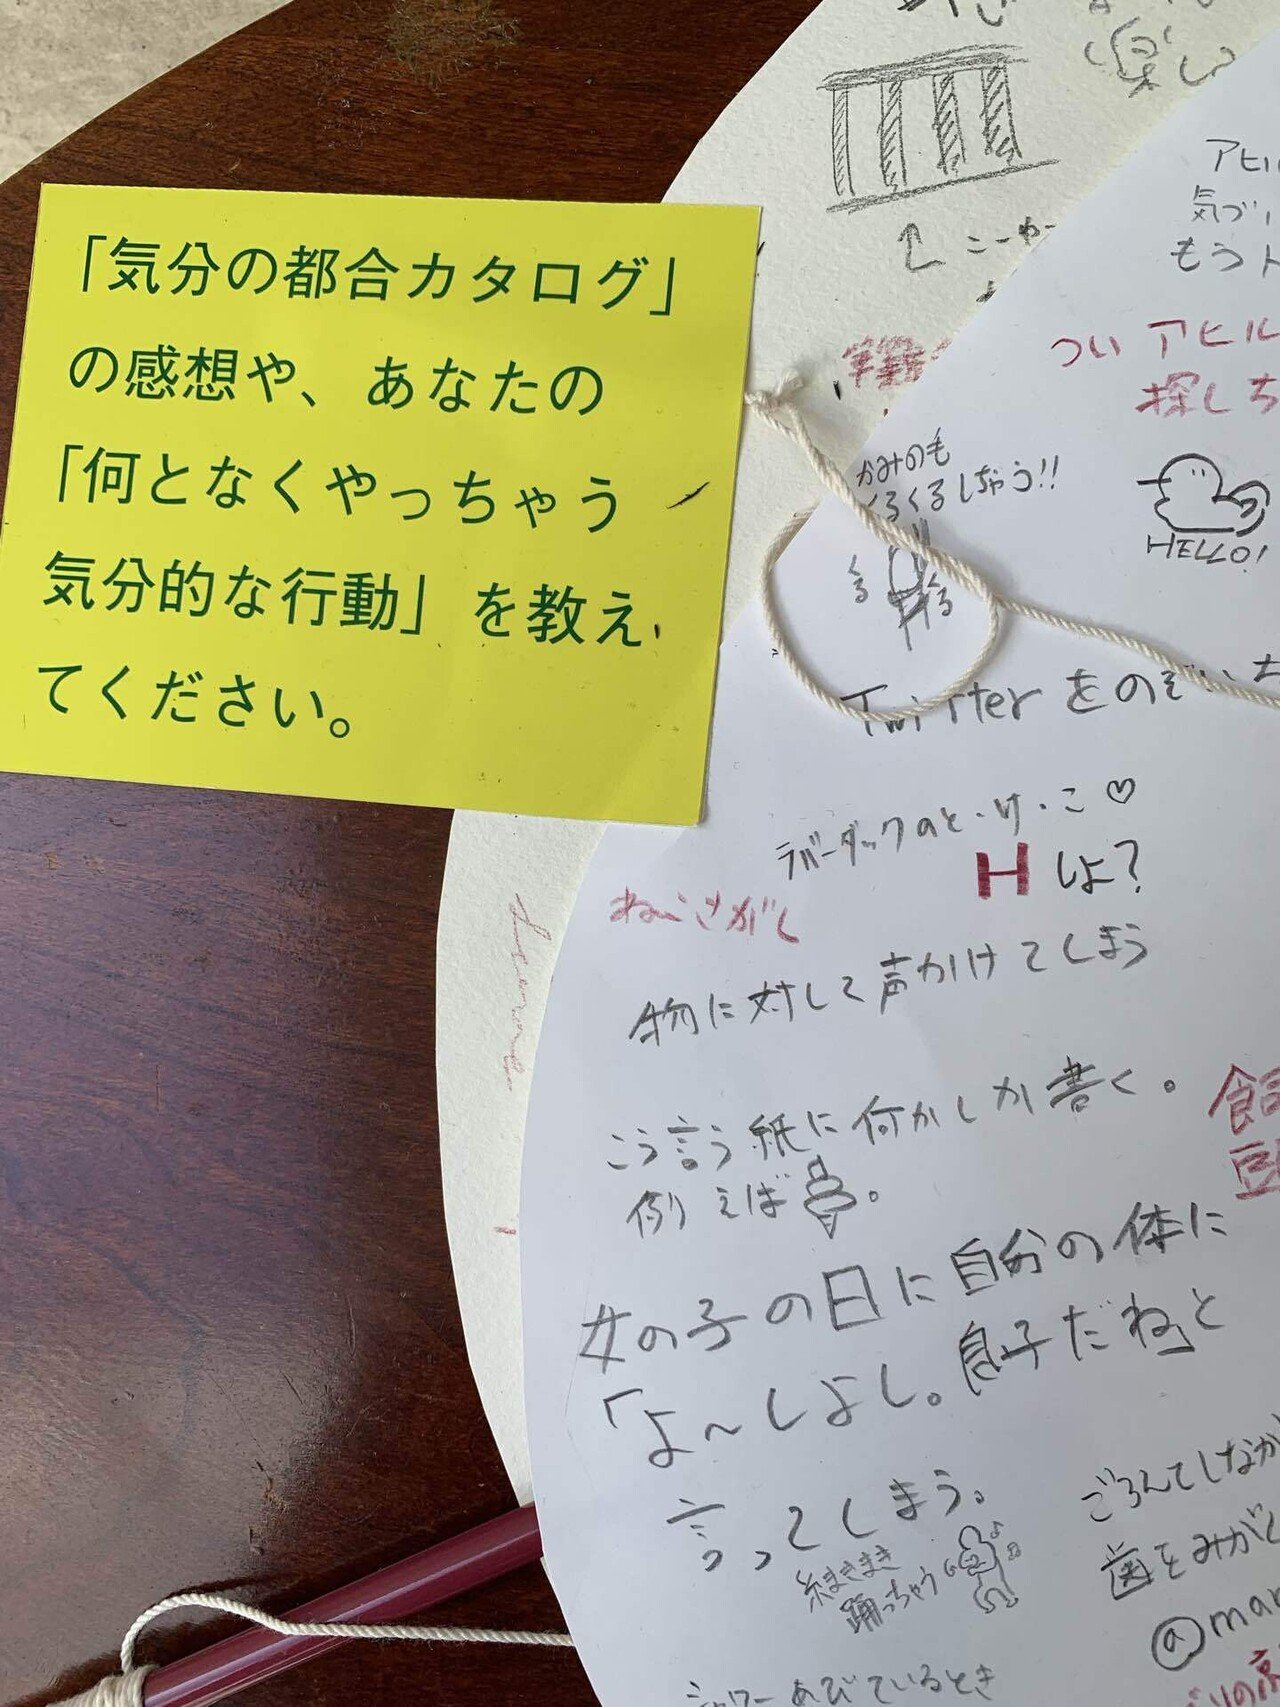 「気分の都合カタログ」
の感想や、あなたの
「何となくやっちゃう
気分的な行動」を教え
てください。
楽し
↑こーゆー
アヒル
気づい
もう
つい アヒル
探しち
HELLO!
かみのも
くるくるしちゃう!!
くる
くる
Twitterをのぞいち
ラバーダックのと・け・こ♡
Hしよ?
ねこさがし
物に対して声かけてしまう
こう言う紙に何かしか書く。
例えば
女の子の日に自分の体に
「よ～しよし。息子だね」と
言ってしまう。
糸まきまき
踊っちゃう
ごろんてしなが
歯をみがく
@mar
シャワーあびているとき